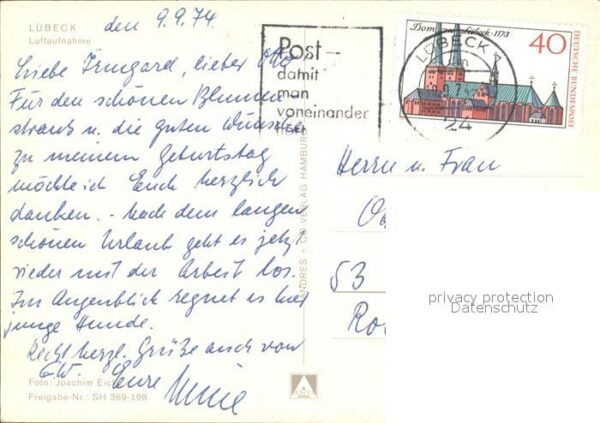 LÜBECK
Luftaufnahme
den 9.9.74.
Liebe Irmgard, lieber
Für den schönen Blumen
strauß u. die guten Wünsche
zu meinem Geburtstag
möchte ich Euch herzlich
danken. - Nach dem langen
schönen Urlaub geht es jetzt
wieder mit der Arbeit los.
Im Augenblick regnet es hier
junge Hunde.
Recht herzl. Grüße auch von
Eure
Foto: Joachim
Freigabe-Nr.: SH 369-198
ANDRES + CO VERLAG HAMBURG
Post-
damit
man
voneinander
hört
LÜBECK 1
24
Dom zu Lübeck · 1173
40
DEUTSCHE BUNDESPOST
Herrn u. Frau
53
privacy protection
Datenschutz